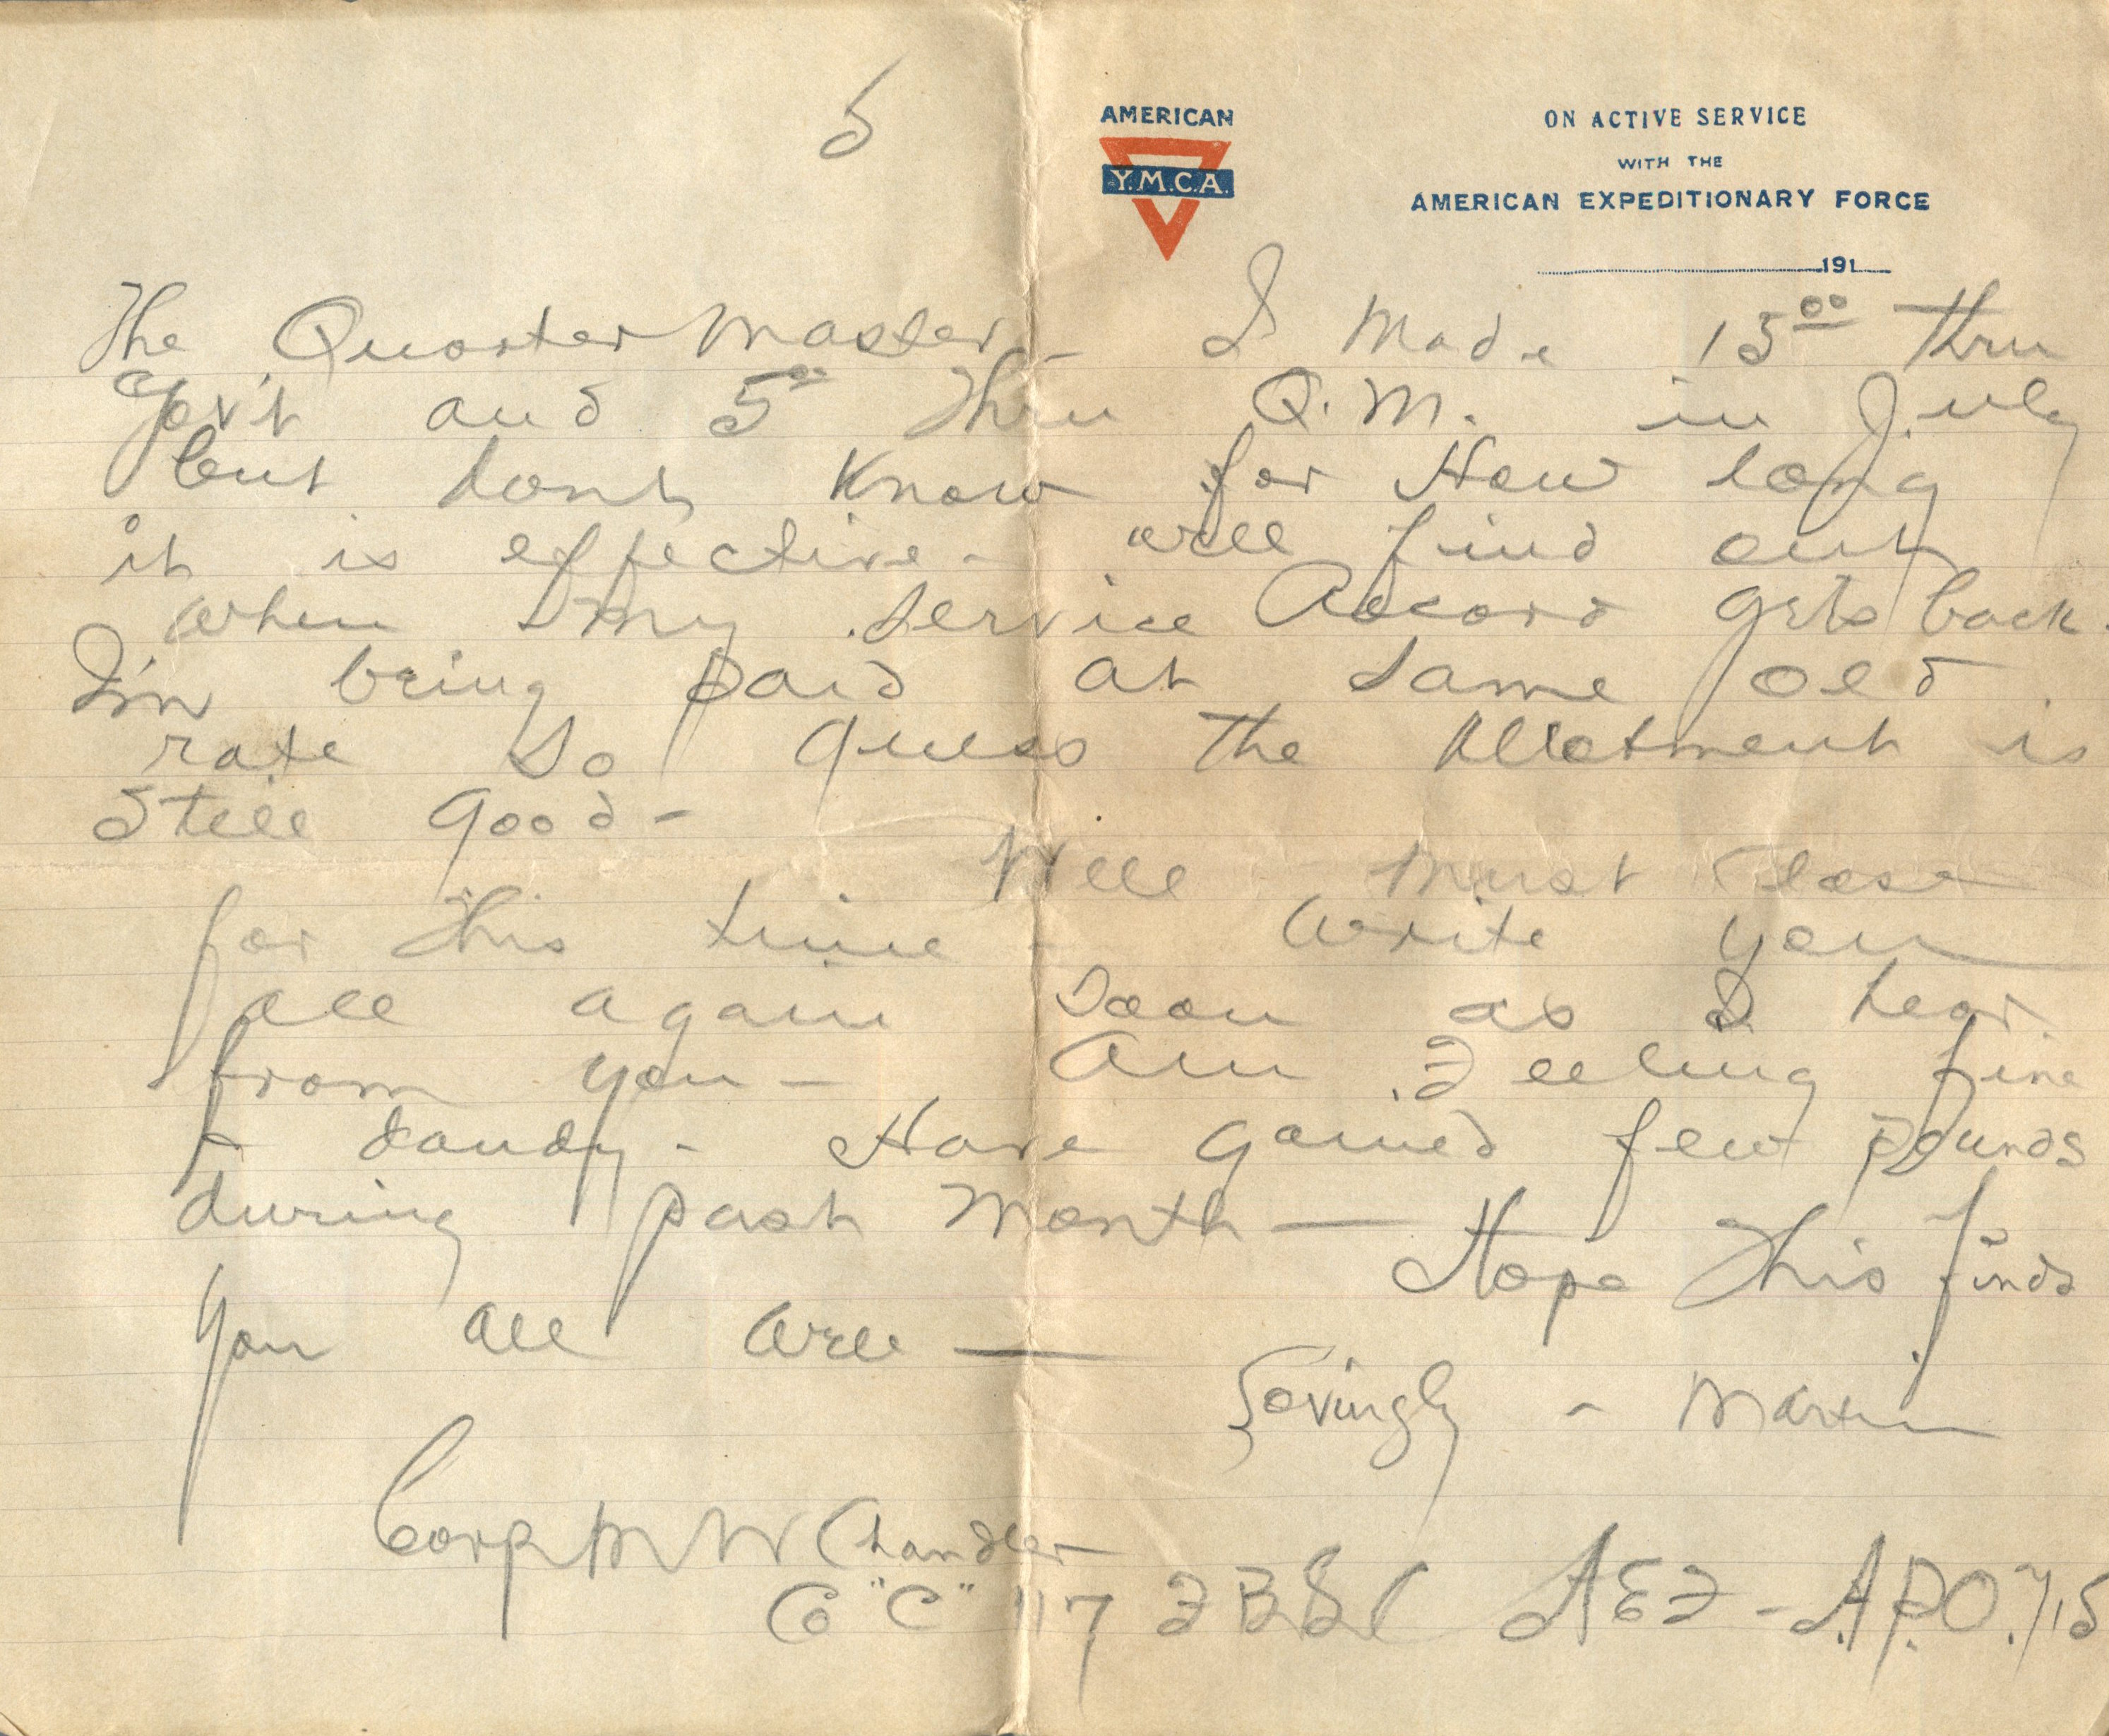 5
AMERICAN
Y.M.C.A.
ON ACTIVE SERVICE
WITH THE
AMERICAN EXPEDITIONARY FORCE
191
The Quarter Master - I made 15⁰⁰ thru
Gov't and 5⁰⁰ Thru Q.M. in July
but dont Know for How long
it is effective - will find out
when my Service Record gets back.
I'm being paid at same old
rate so guess the Allotment is
still good -
Well must close
for this time - write you
all again soon as I hear
from you - Am Feeling fine
+ dandy - Have gained few pounds
during past month — Hope This finds
you all well —
Lovingly - Martin
Corp M W Chandler
Co "C" 117 F B S C A E F - A.P.O. 715